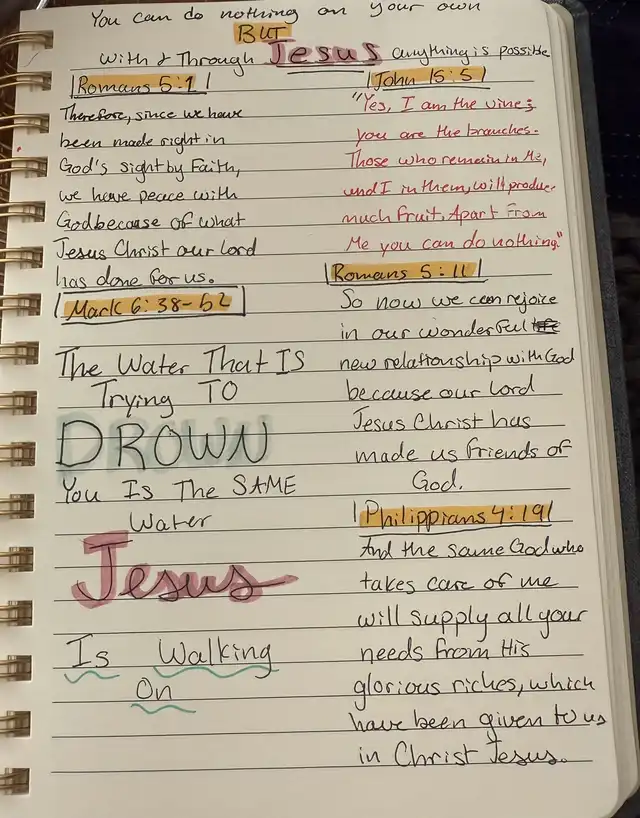 You can do nothing on your own
BUT
With & Through Jesus anything is possible
Romans 5:1
Therefore, since we have
been made right in
God's sight by Faith,
we have peace with
God because of what
Jesus Christ our Lord
has done for us.
Mark 6:38-52
The Water That IS
Trying TO
DROWN
You Is The SAME
Water
Jesus
Is Walking
On
John 15:5
"Yes, I am the vine;
you are the branches.
Those who remain in Me,
and I in them, will produce
much fruit, Apart From
Me you can do nothing."
Romans 5:11
So now we can rejoice
in our wonderful
new relationship with God
because our Lord
Jesus Christ has
made us friends of
God.
Philippians 4:19
And the same God who
takes care of me
will supply all your
needs from His
glorious riches, which
have been given to us
in Christ Jesus.